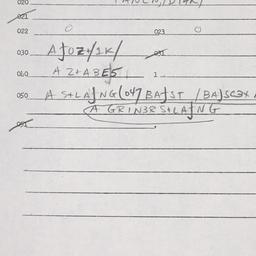 020
021
022 O 023 O
030 AJOZ+/1K/ 031
040 AZ+ABES 1
050 A S+LAJNG(047 BAJST /BAJSC3X
A GRIN3RS+LAJNG
051